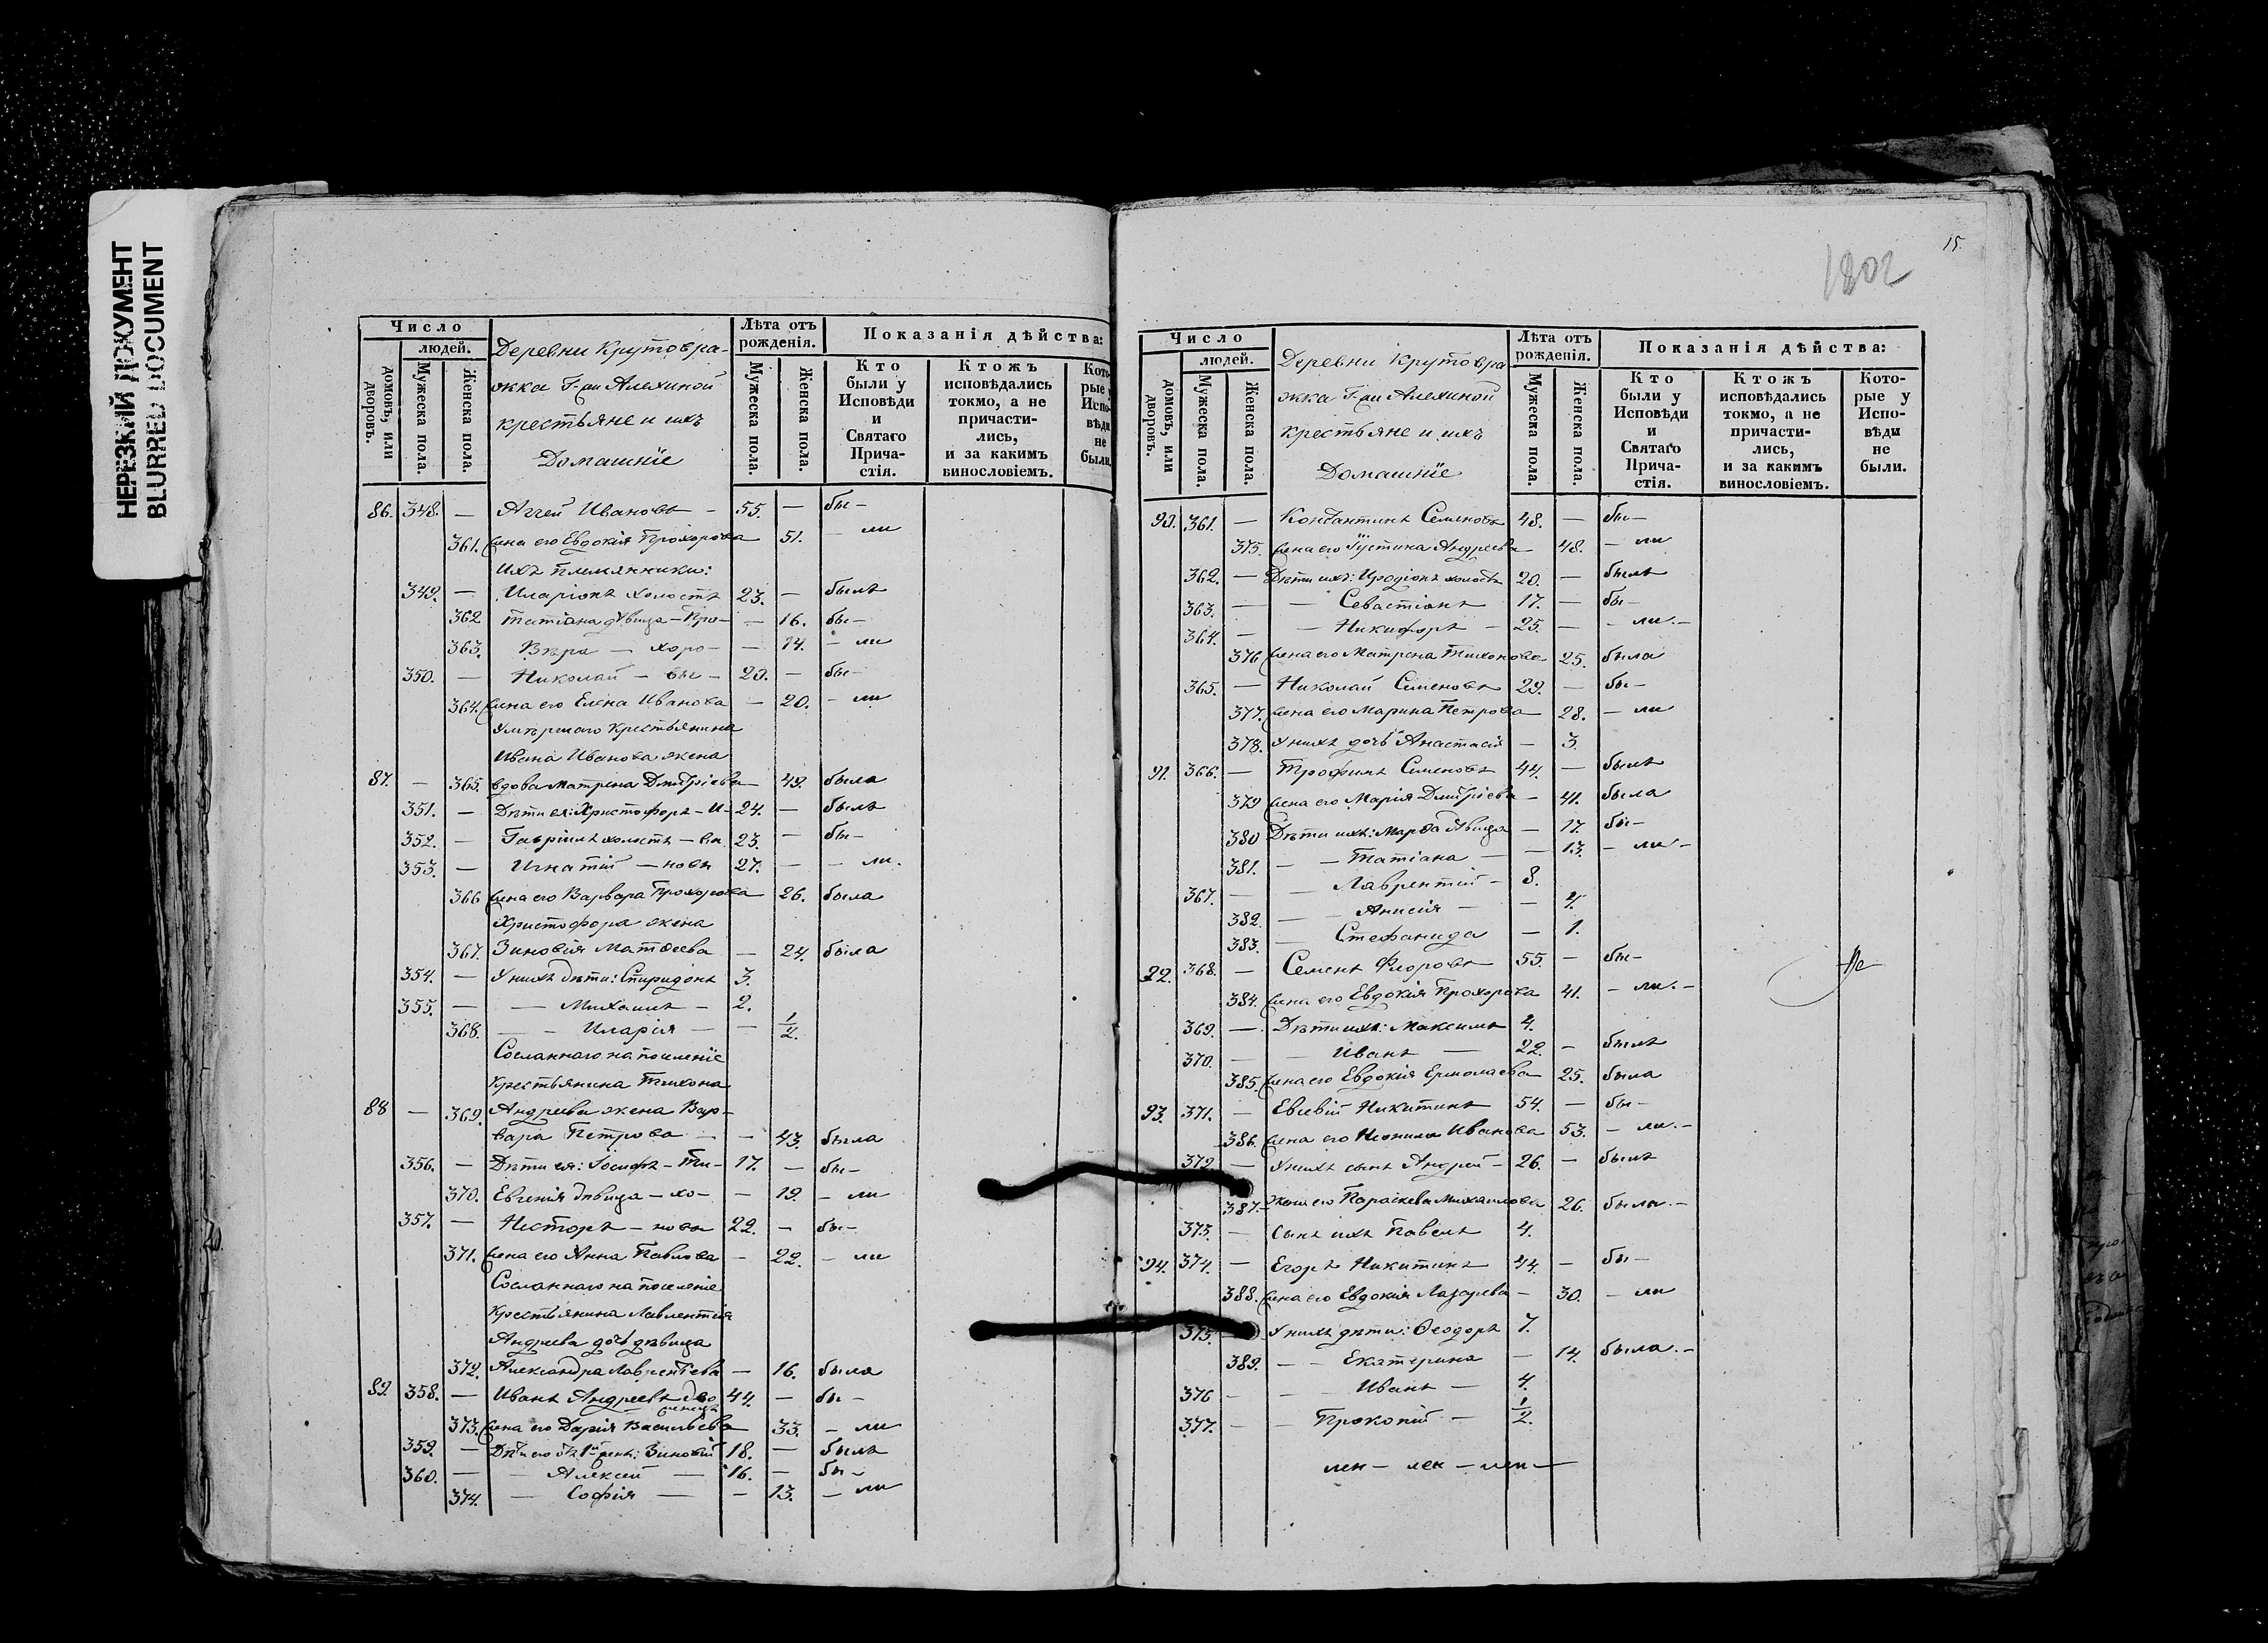 НЕРЕЗКИЙ ДОКУМЕНТ
BLURRED DOCUMENT
Число
людей.
домовъ, или дворовъ.
Мужеска пола.
Женска пола.
Деревни Крутовра-
жка Г-жи Алехиной
крестьяне и ихъ
Домашніе
Лѣта отъ рожденія.
Мужеска пола.
Женска пола.
Показанія дѣйства:
Кто были у Исповѣди и Святаго Прича-стія.
Ктожъ исповѣдались токмо, а не причасти-лись, и за какимъ винословіемъ.
Кото-рые у Испо-вѣди не были.
86. 348. — Аггей Ивановъ — 55. — бы-
361. Жена его Евдокія Прохорова 51. — ли
Ихъ племянники:
349. — Иларіонъ холостъ 23. — былъ
362 Татіана дѣвица — Про- — 16. бы-
363. Вѣра — хоро- — 14. — ли
350. — Николай — вы — 20. — бы-
364. Жена его Елена Иванова — 20. — ли
Умершаго крестьянина
Ивана Иванова жена
87. — 365. вдова Матрена Дмитріева — 49. была
351. — Дѣти ея: Христофоръ — И- 24. — былъ
352. — Гавріилъ холостъ — ва 23. — бы-
353. — Игнатій — новы 27. — — ли.
366 Жена его Варвара Прохорова 26. была
Христофора жена
367. Зиновія Матѳеева — 24. была
354. — У нихъ дѣти: Спиридонъ 3.
355. — — Михаилъ — 2.
368. — — Иларія — — 1/2.
Сосланнаго на поселеніе
Крестьянина Тихона
88 — 369. Андреева жена Вар-
вара Петрова — — 43. была
356. — Дѣти ея: Іосифъ — Ти- 17. — бы-
370. Евгенія дѣвица — хо- — 19. — ли
357. — Несторъ — новы 22. — бы-
371. Жена его Анна Павлова — 22. — ли
Сосланнаго на поселеніе
Крестьянина Лаврентія
Андреева дочь дѣвица
372. Александра Лаврентьева — 16. была
89. 358. — Иванъ Андреевъ дво 44. — бы-
женецъ
373. Жена его Дарія Васильева 33. — ли
359. — Дѣти его отъ 1й жены: Зиновій 18. — былъ
360. — — Алексей — 16. — бы-
374. — Софія — — 13. — ли
15.
1802
Число
людей.
домовъ, или дворовъ.
Мужеска пола.
Женска пола.
Деревни Крутовра
жка Г-жи Алехиной
крестьяне и ихъ
Домашніе
Лѣта отъ рожденія.
Мужеска пола.
Женска пола.
Показанія дѣйства:
Кто были у Исповѣди и Святаго Прича-стія.
Ктожъ исповѣдались токмо, а не причасти-лись, и за какимъ винословіемъ.
Кото-рые у Испо-вѣди не были.
90. 361. — Константинъ Семеновъ 48. — бы-
375. Жена его Іустина Андреева — 48. — ли
362. — Дѣти ихъ: Иродіонъ холостъ 20. — былъ
363. — — Севастіанъ 17. — бы-
364. — — Никифоръ — 25. — — ли. —
376 Жена его Матрена Тихонова 25. была
365. — Николай Семеновъ 29. — бы-
377. Жена его Марина Петрова — 28. — ли
378. У нихъ дочь Анастасія — 3.
91. 366. — Трофимъ Семеновъ 44. — былъ
379 Жена его Марія Дмитріева — 41. была
380 Дѣти ихъ: Марѳа дѣвица — 17. бы-
381. — — Татіана — — 13. — ли —
367. — — Лаврентій — 8.
382. — — Анисія — — 4.
383. — Стефанида — 1.
92. 368. — Семенъ Флоровъ 55. — бы-
384. Жена его Евдокія Прохорова 41. — ли. —
369. — Дѣти ихъ: Максимъ 4.
370. — — Иванъ — 22. — былъ
385. Жена его Евдокія Ермолаева 25. была
93. 371. — Евсевій Никитинъ 54. — бы-
386. Жена его Неонила Иванова 53. — ли. —
372. — У нихъ сынъ Андрей — 26. — былъ
387. — Жена его Параскева Михаилова 26. была. —
373. — Сынъ ихъ Павелъ 4.
94. 374. — Егоръ Никитинъ 44. — бы-
388. Жена его Евдокія Лазарева — 30. — ли
375. — У нихъ дѣти: Ѳеодоръ 7.
389. — — Екатерина — 14. была. —
376 — — Иванъ — 4.
377. — — Прокопій — 1/2.